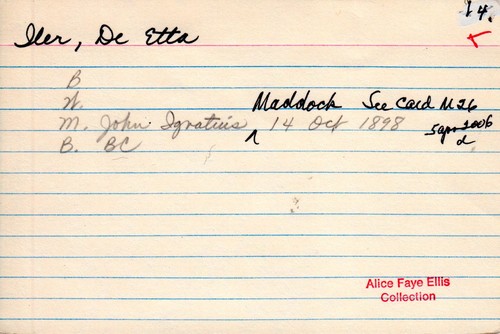 14.
Iler, De Etta
B
W.
Maddock See Card M26
M. John Ignatius ^ 14 Oct 1898
5 apr 2006
B. BC d
Alice Faye Ellis
Collection